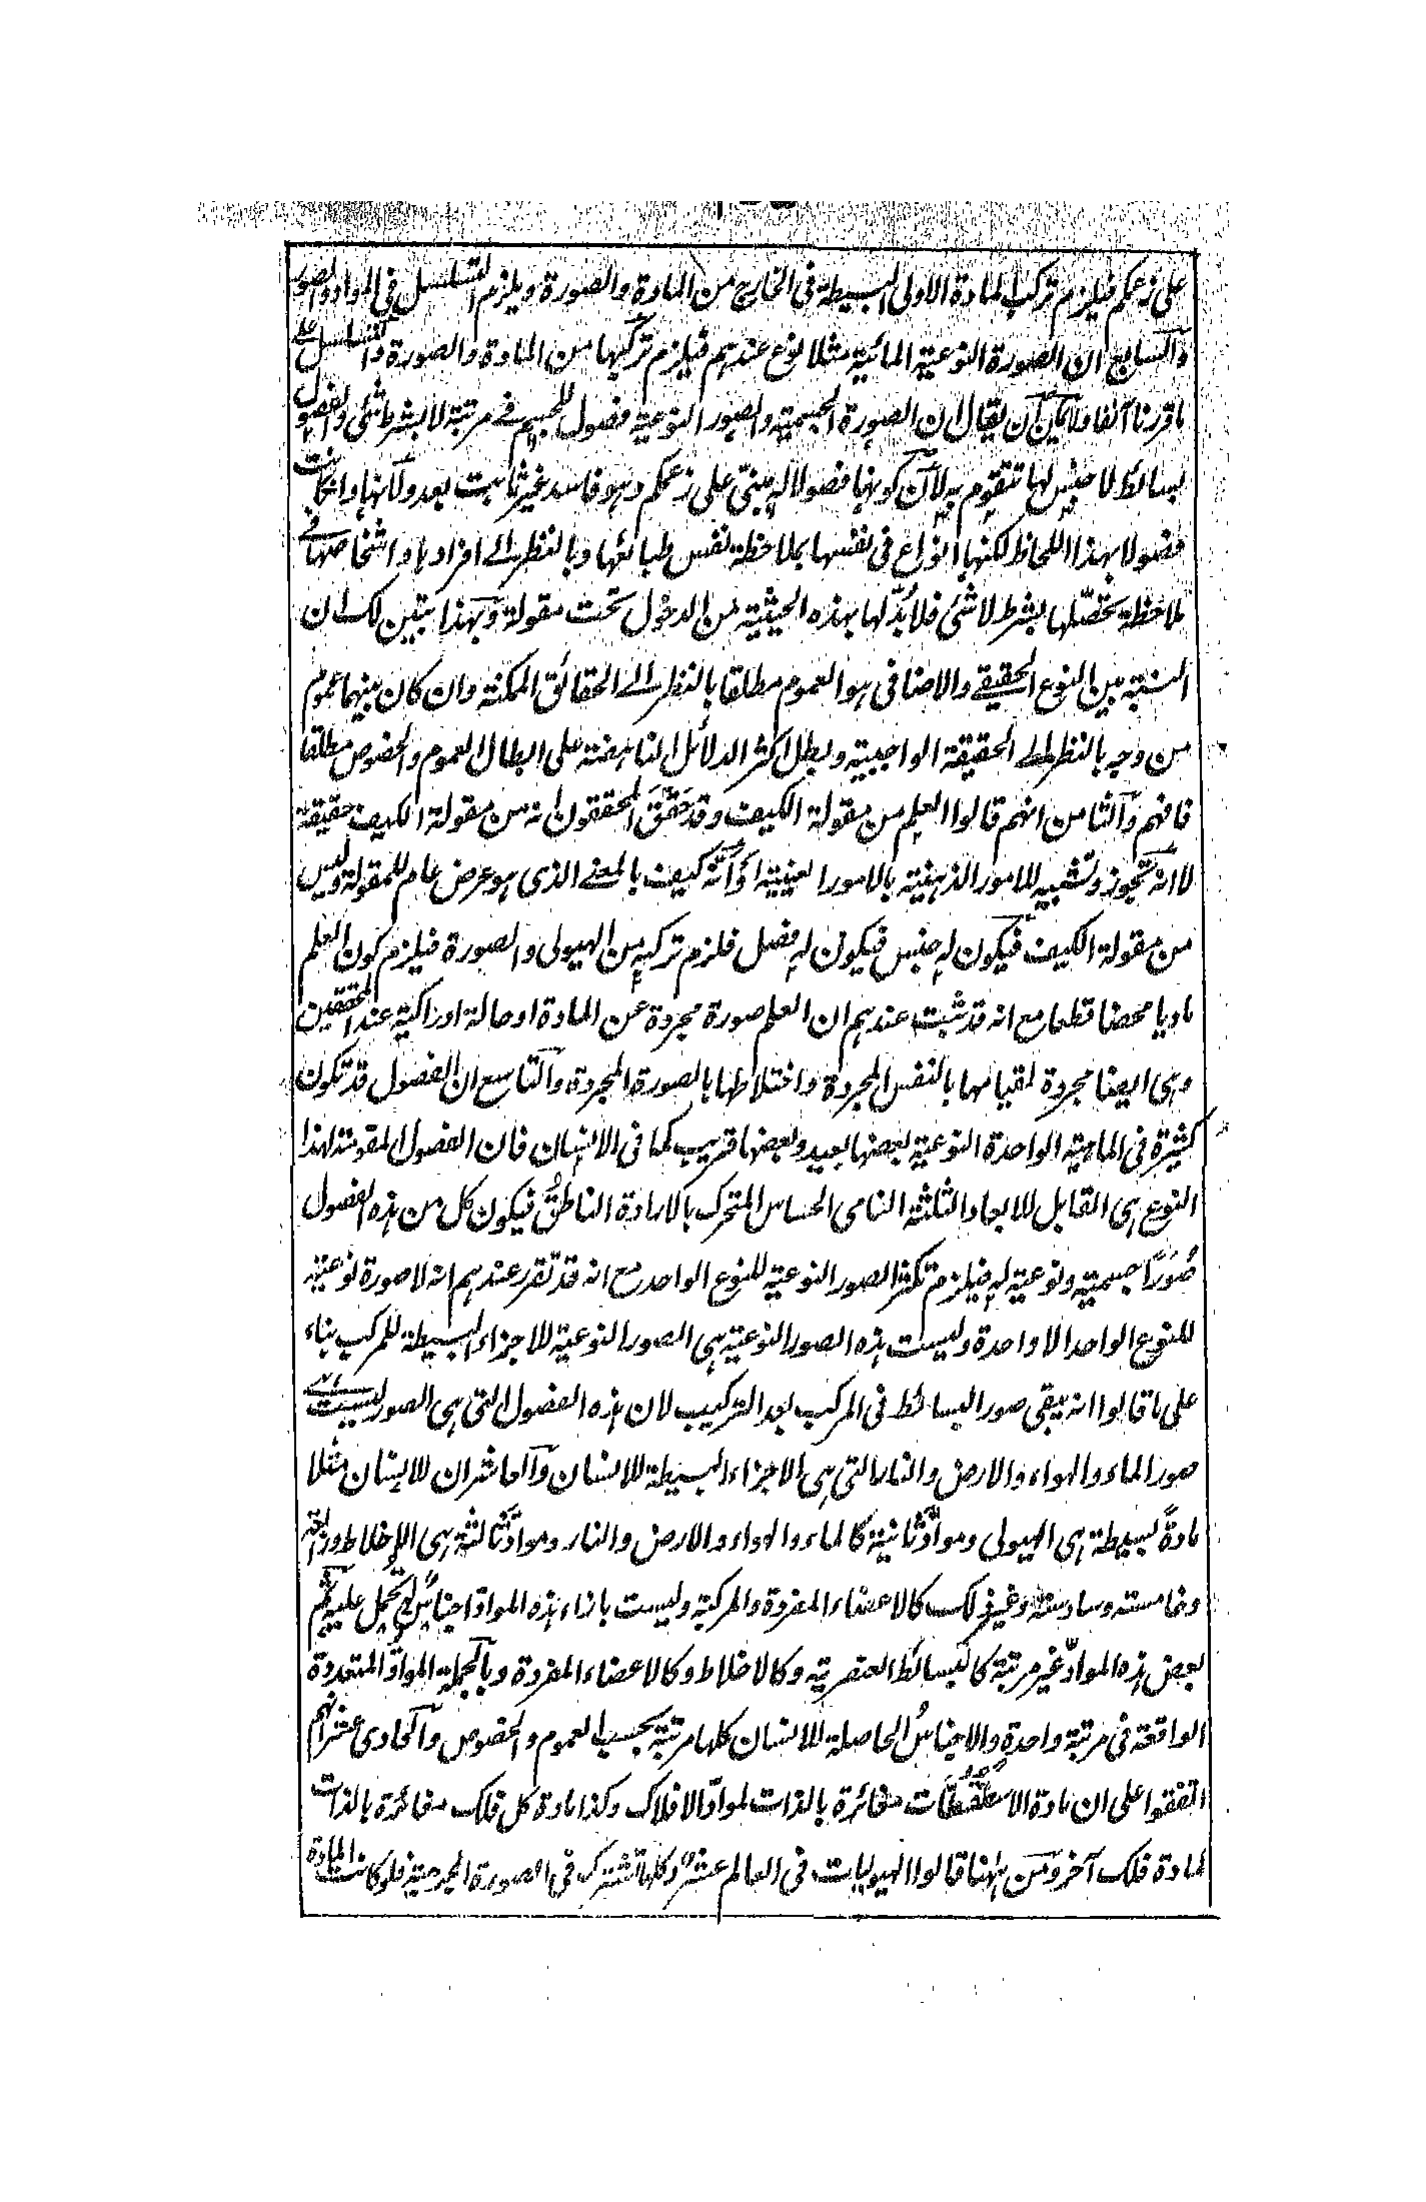 على زعمكم فيلزم تركب المادة الاولى البسيطة فى الخارج من المادة والصورة ويلزم التسلسل فى المواد والصور
والسابع ان الصورة النوعية المائية مثلا نوع عندهم فيلزم تركبها من المادة والصورة والتسلسل على
ما قررنا آنفا ولا يمكن ان يقال ان الصورة الجسمية والصور النوعية فصول للجسم فے مرتبة لا بشرط شئ والفصول
بسائط لا جنس لها تتقوم به لان كونها فصولا له مبنىّ على زعمكم وهو فاسد غير ثابت بعد ولانها وان كانت
فصولا بهذا اللحاظ لكنها انواع فى نفسها بملاحظة نفس طبائعها وبالنظر الے افرادها واشخاصها فے
ملاحظة تحصّلها بشرط لا شئ فلا بُدّ لها بهذه الحيثية من الدخول تحت مقولة وبهذا يتبين لك ان
النسبة بين النوع الحقيقے والاضافى هو العموم مطلقا بالنظر الے الحقائق الممكنة وان كان بينهما عموم
من وجه بالنظر الے الحقيقة الواجبية وبطل اكثر الدلائل الناهضة على ابطال العموم والخصوص مطلقا
فافهم والثامن انهم قالوا العلم من مقولة الكيف وقد حَقَّقَ المحققون انه من مقولة الكيف حقيقة
لا انه تجوز وتشبيه للامور الذهنية بالامور العينية او انّه كيف بالمعنے الذى هو عرض عام للمقولة وليس
من مقولة الكيف فيكون له جنس فيكون له فصل فلزم تركبه من الهيولى والصورة فيلزم كون العلم
ماديا محضا قطعا مع انه قد ثبت عندهم ان العلم صورة مجردة عن المادة او حالة ادراكية عند المحققين
وهى ايضا مجردة لقيامها بالنفس المجردة واختلاطها بالصورة المجردة والتاسع ان الفصول قد تكون
كثيرة فى الماهية الواحدة النوعية بعضها بعيد وبعضها قريب كما فى الانسان فان الفصول المقومة لهذا
النوع هى القابل للابعاد الثلثة النامى الحساس المتحرك بالارادة الناطقُ فيكون كل من هذه الفصول
صُوَرًا جسمية ونوعية له فيلزم تكثر الصور النوعية للنوع الواحد مع انه قد تقرر عندهم انه لا صورة نوعية
للنوع الواحد الا واحدة وليست هذه الصور النوعية هى الصور النوعية للاجزاء البسيطة للمركب بناء
على ما قالوا انه يبقى صور البسائط فى المركب بعد التركيب لان هذه الفصول التى هى الصور ليست هے
صور الماء والهواء والارض والنار التى هى الاجزاء البسيطة للانسان والعاشر ان للانسان مثلا
مادةً بسيطة هى الهيولى وموادَّ ثانية كالماء والهواء والارض والنار وموادَّ ثالثة هى الاخلاط ورابعة
وخامسة وسادسة وغير ذلك كالاعضاء المفردة والمركبة وليست بازاء هذه المواد اجناسٌ تحمل عليه ثم
بعض هذه الموادّ غير مرتبة كالبسائط العنصرية وكالاخلاط وكالاعضاء المفردة وبالجملة الموادّ المتعددة
الواقعة فى مرتبة واحدة والاجناسُ الحاصلة للانسان كلها مرتبة بحسب العموم والخصوص والحادى عشر انهم
اتفقوا على ان مادة الاسطقسات مغائرة بالذات لموادّ الافلاك وكذا مادة كل فلك مغائرة بالذات
لمادة فلك آخر ومن ههنا قالوا الهيوليات فى العالم عشرٌ وكلها تشترك فى الصورة الجرمية فلو كانت المادة